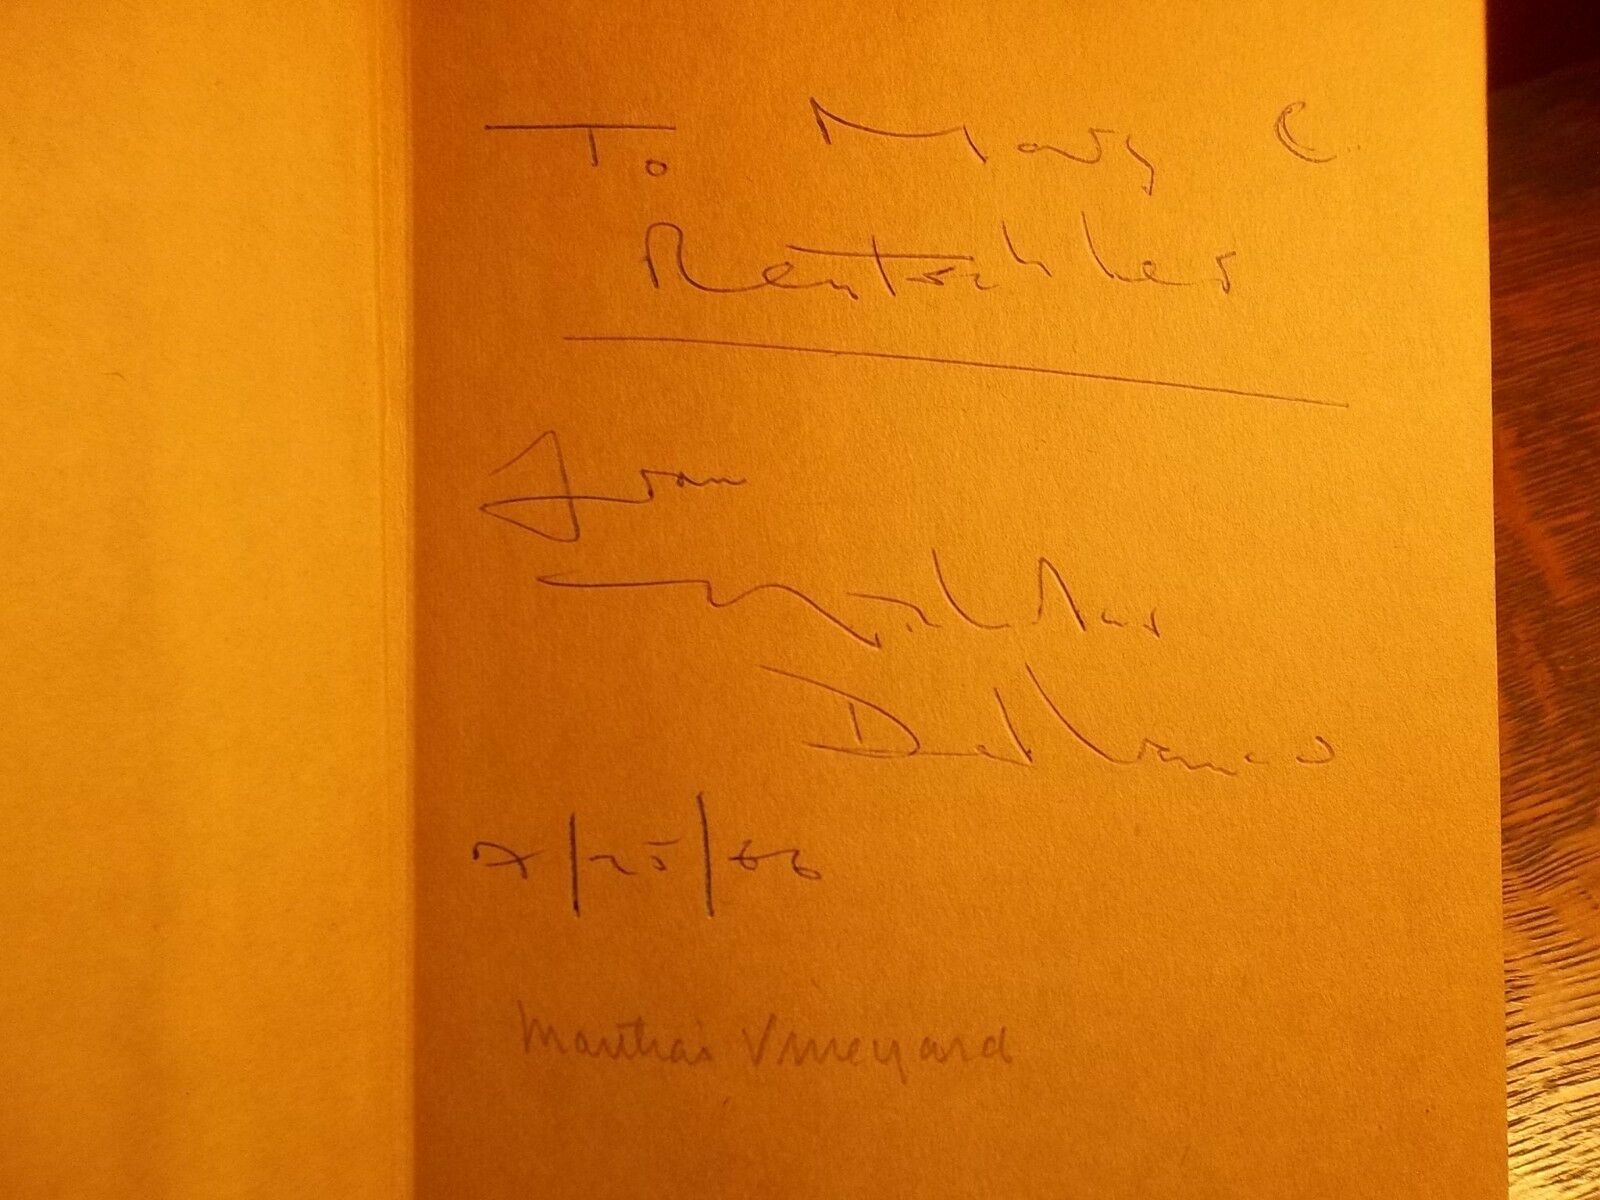 To Mary C.
Rentschler
From
Nicholas
Delbanco
7/25/66
Martha's Vineyard